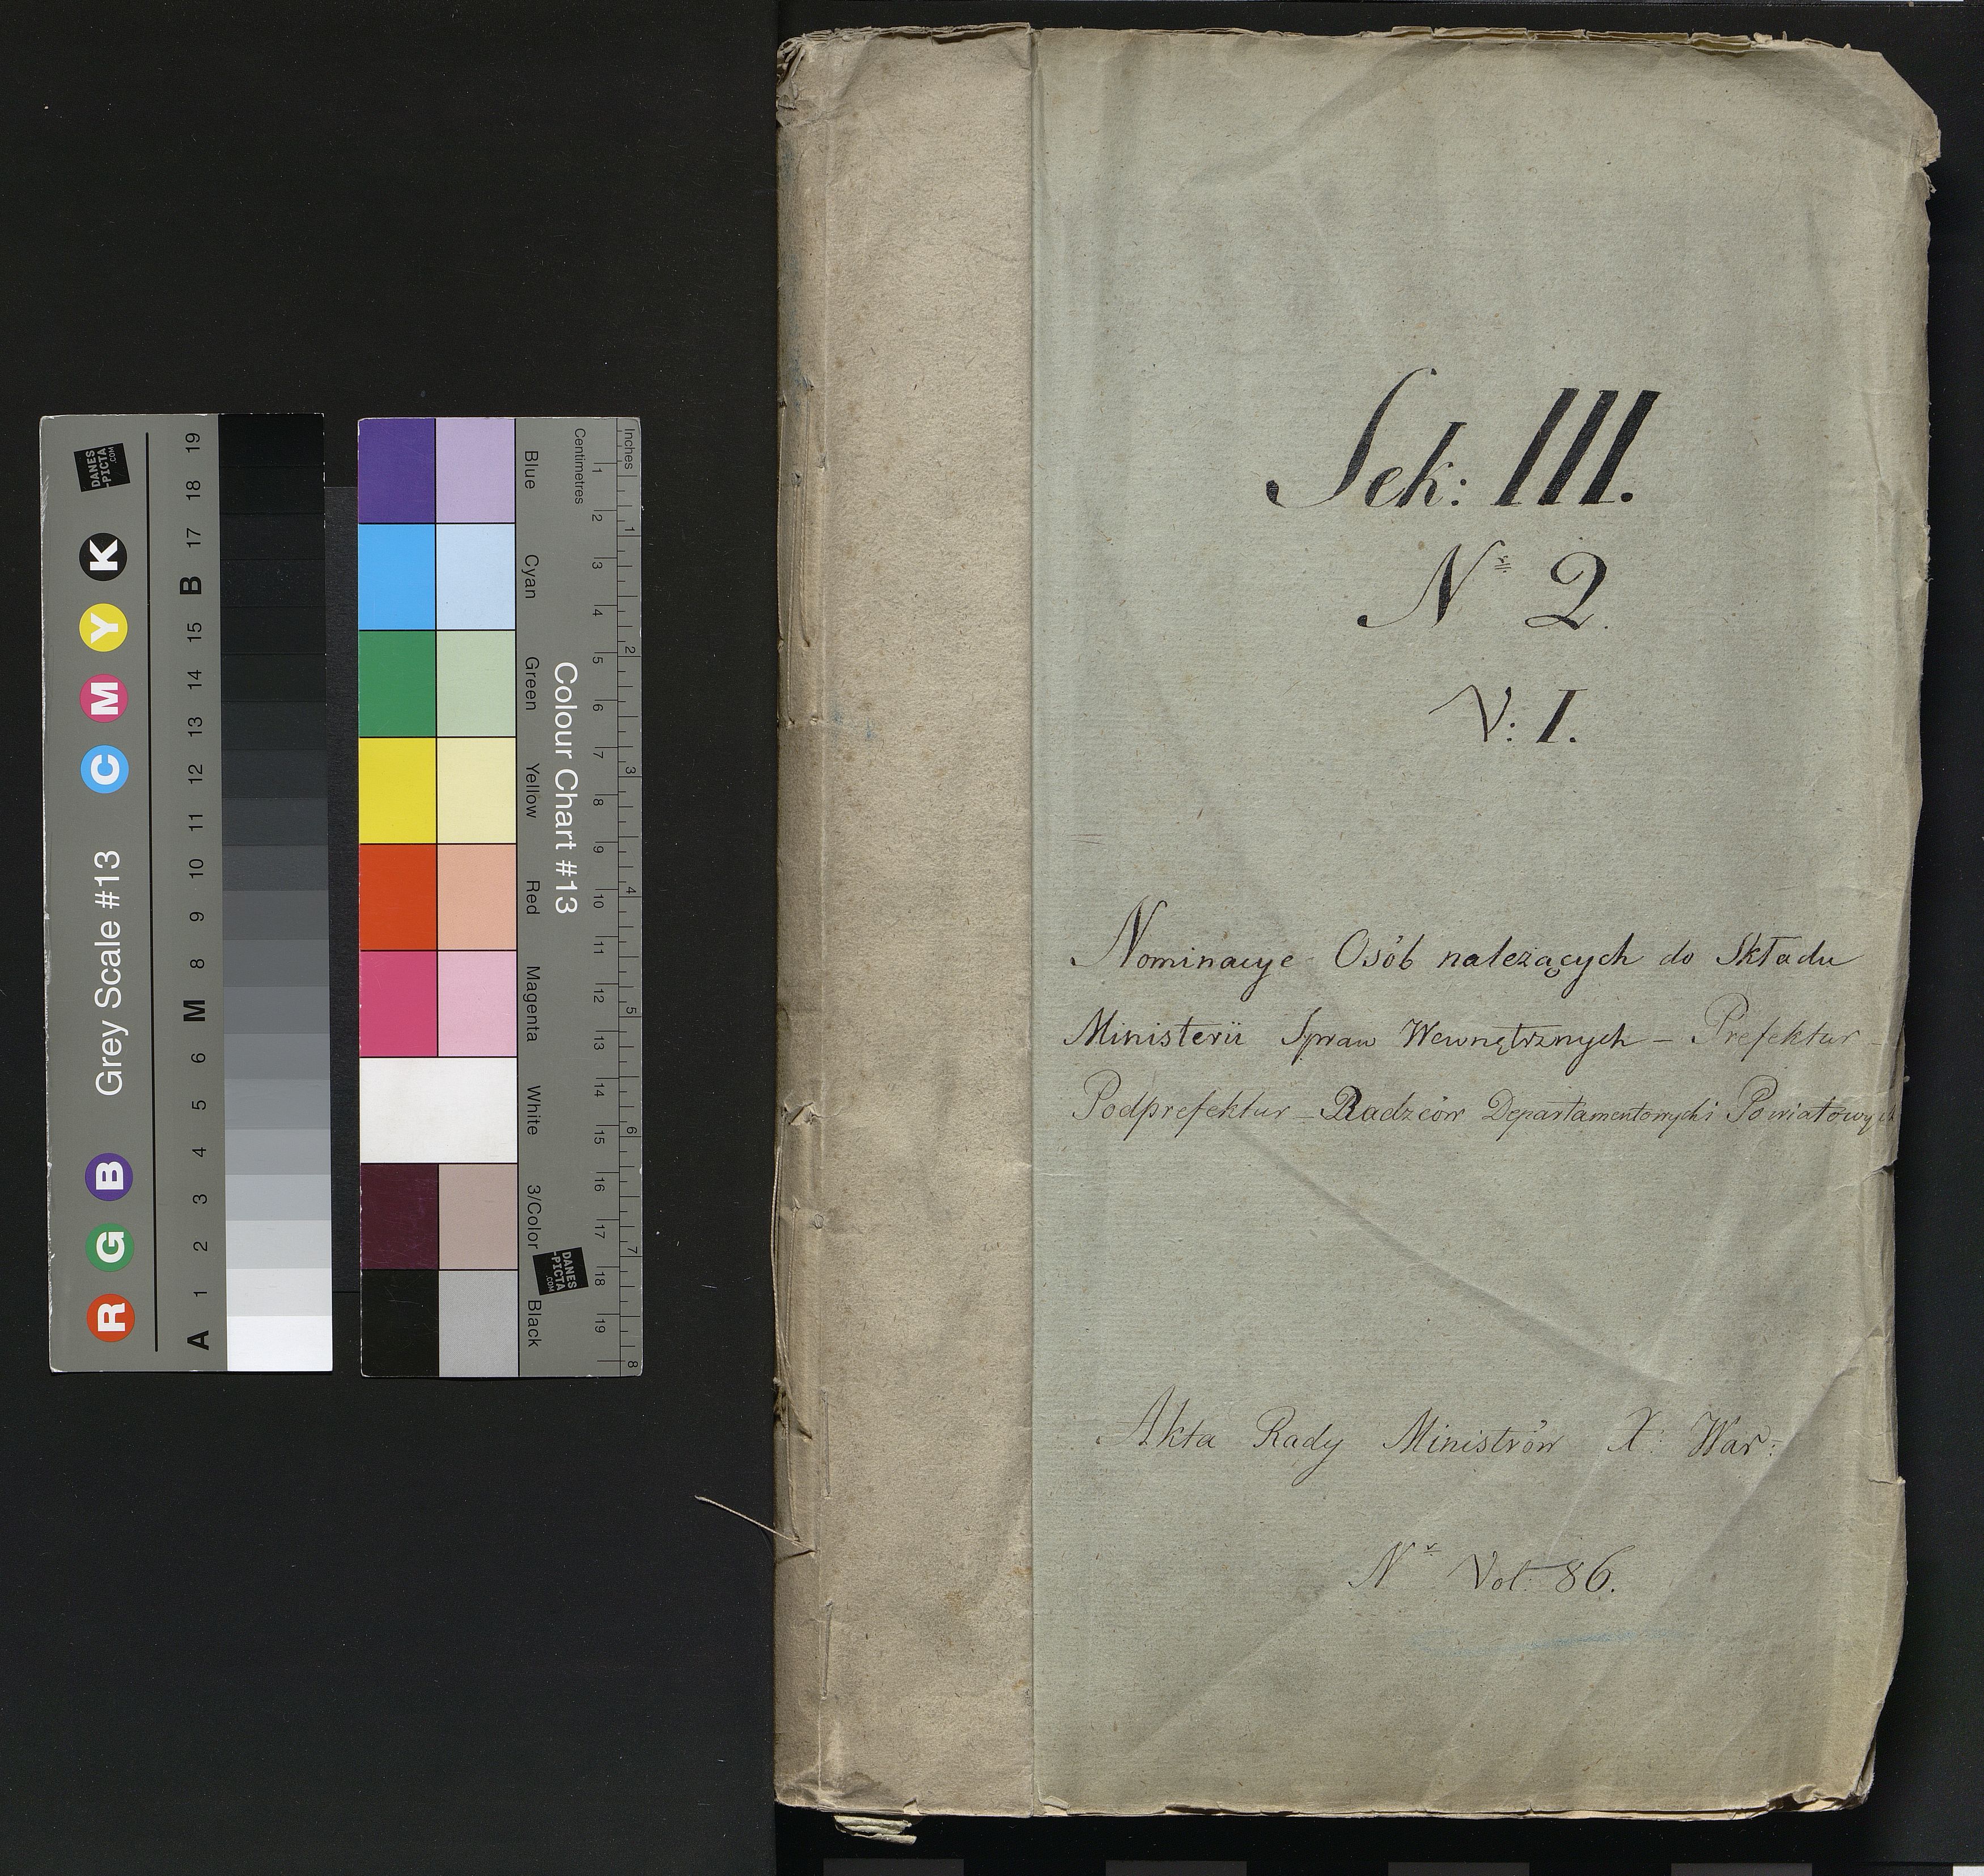 Sek: III.
Nr 2.
V: I.
Nominacye Osób należących do Składu
Ministerii Spraw Wewnętrznych – Prefektur –
Podprefektur – Radzców Departamentowych i Powiatowych
Akta Rady Ministrów X: War:
Nr Vol: 86.
Grey Scale #13
R G B C M Y K
A 1 2 3 4 5 6 M 8 9 10 11 12 13 14 15 B 17 18 19
DANES
-PICTA
.COM
Colour Chart #13
Blue Cyan Green Yellow Red Magenta White 3/Color Black
Centimetres
1 2 3 4 5 6 7 8 9 10 11 12 13 14 15 16 17 18 19
Inches
1 2 3 4 5 6 7 8
DANES
-PICTA
.COM